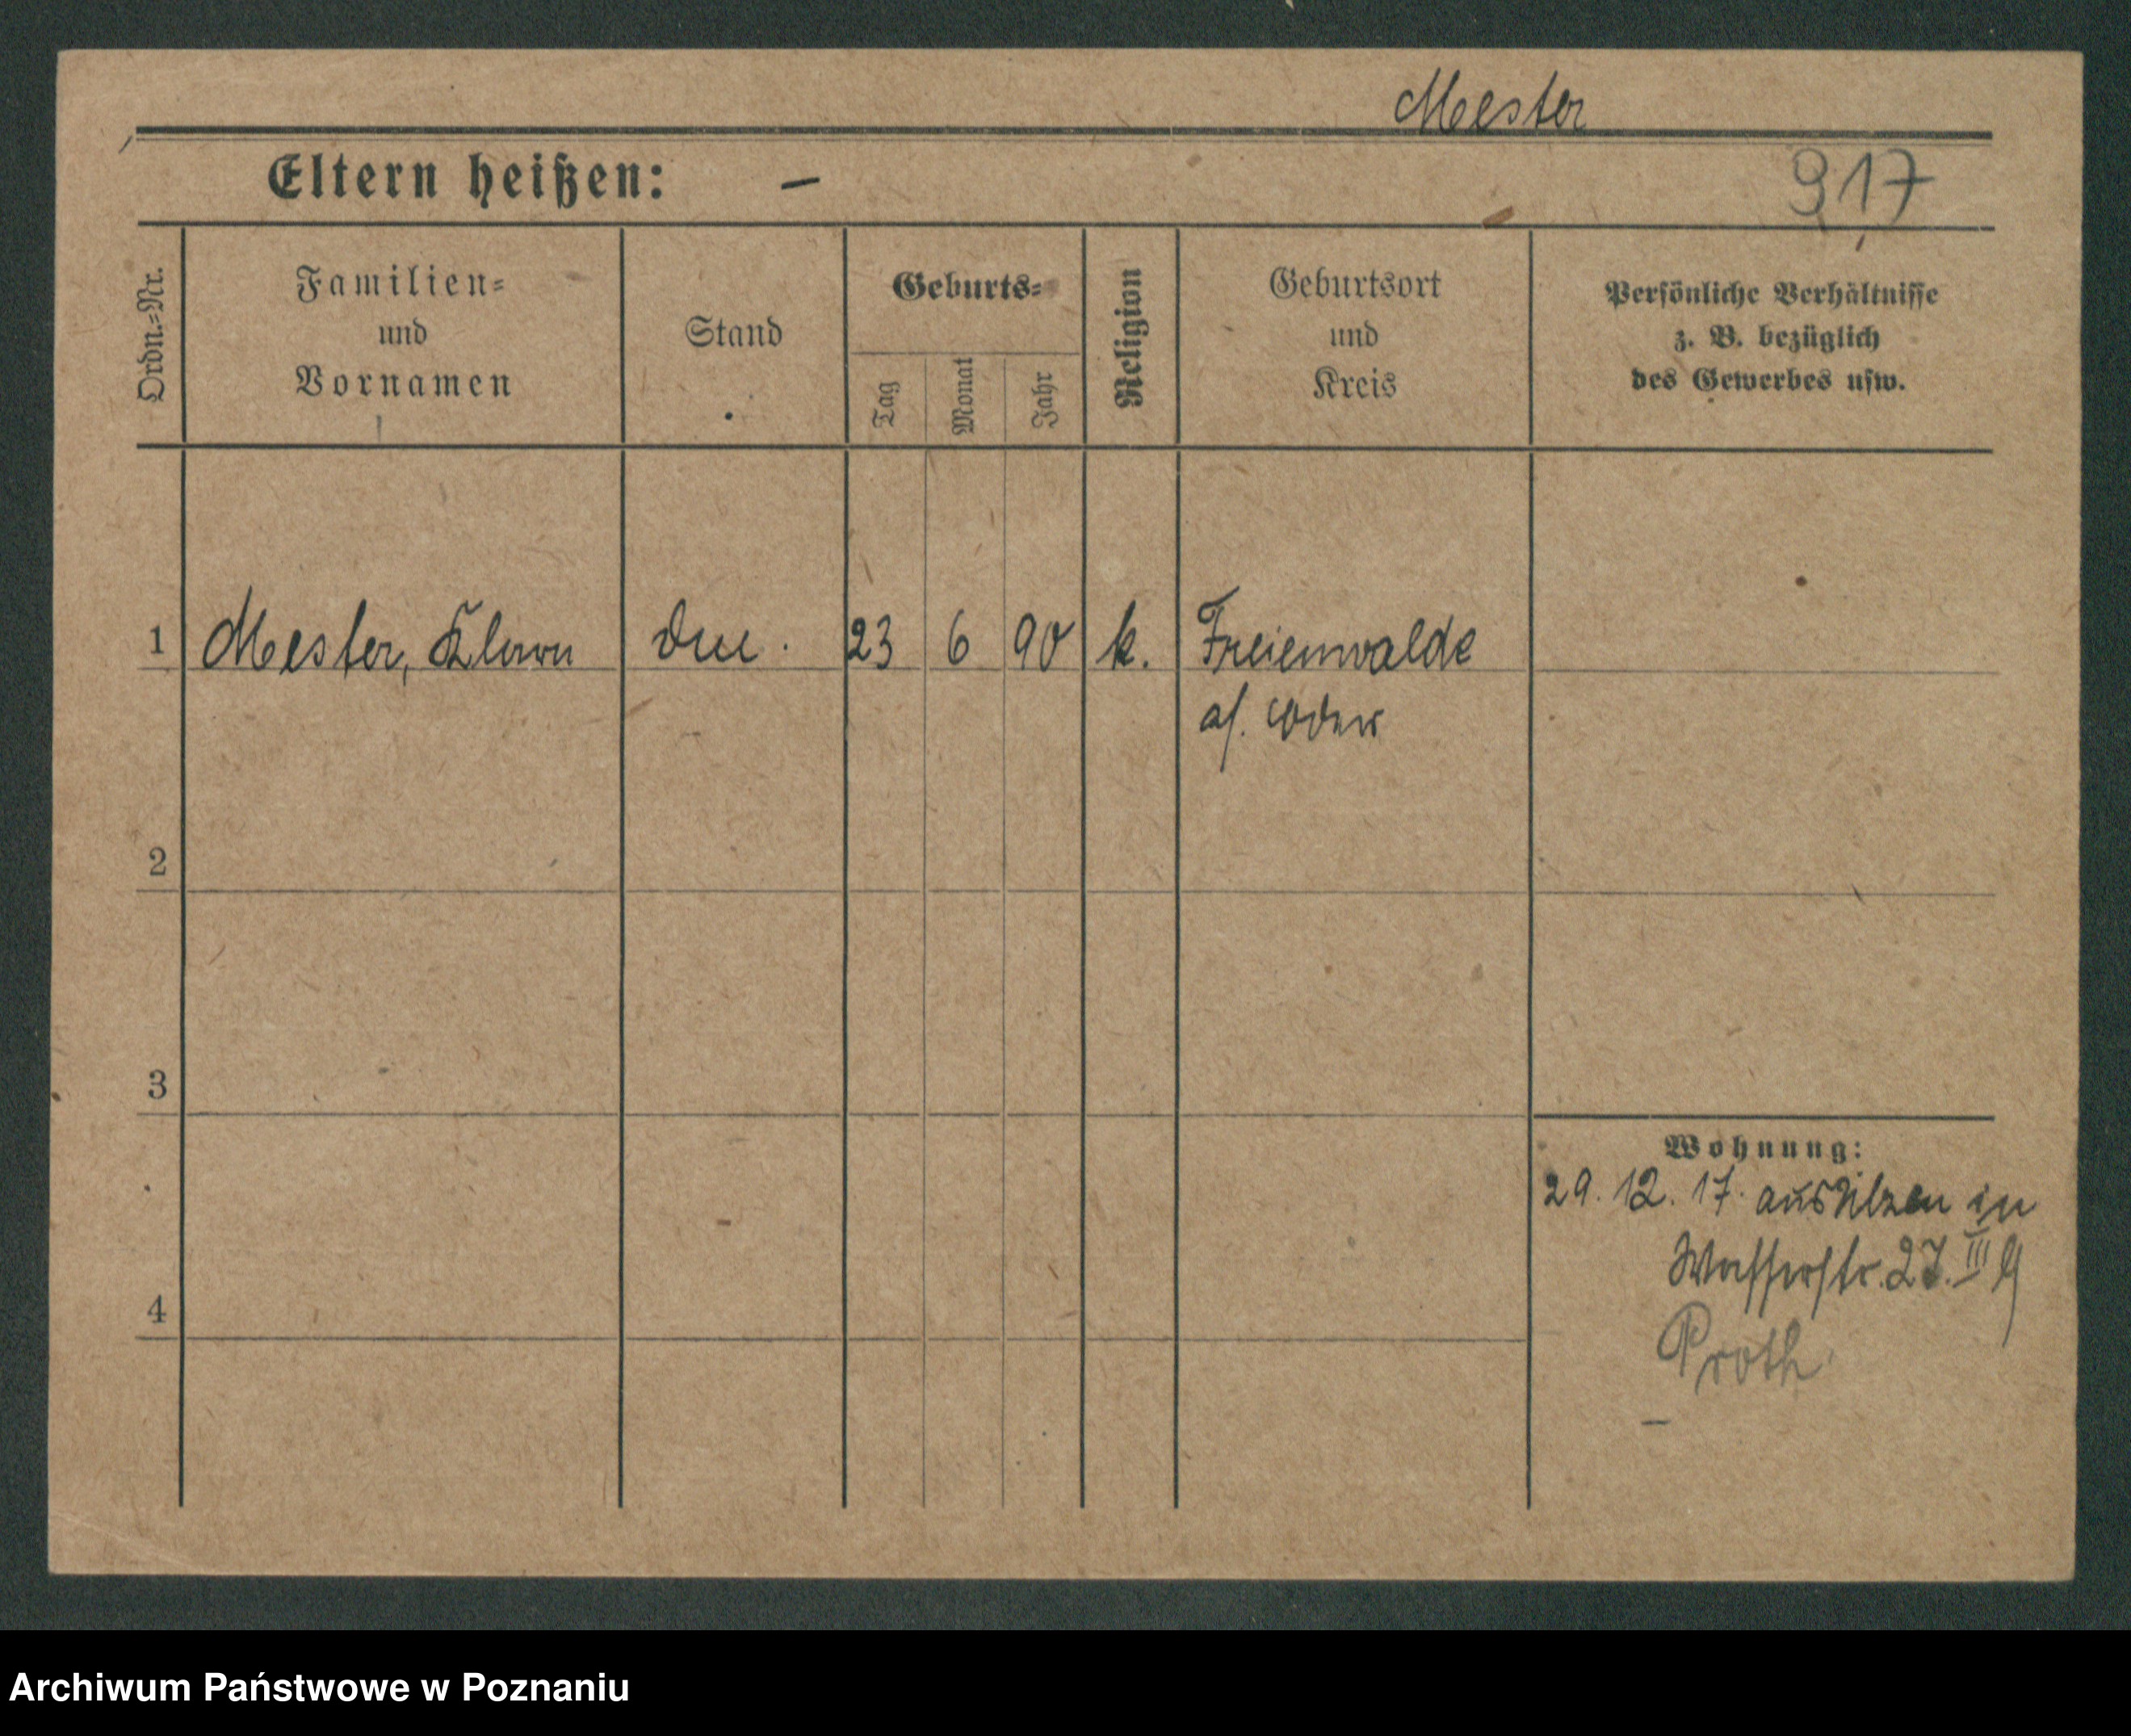 Mester
Eltern heißen: –
917
Ordn.-Nr.
Familien-
und
Vornamen
Stand
Geburts-
Tag
Monat
Jahr
Religion
Geburtsort
und
Kreis
Persönliche Verhältnisse
z. B. bezüglich
des Gewerbes usw.
1 Mester, Klara 23 6 90 k. Freienwalde
a/. Oder
2
3
4
Wohnung:
29. 12. 17. aus Ülzen in
Wasserstr. 27. III
Proth
–
Archiwum Państwowe w Poznaniu